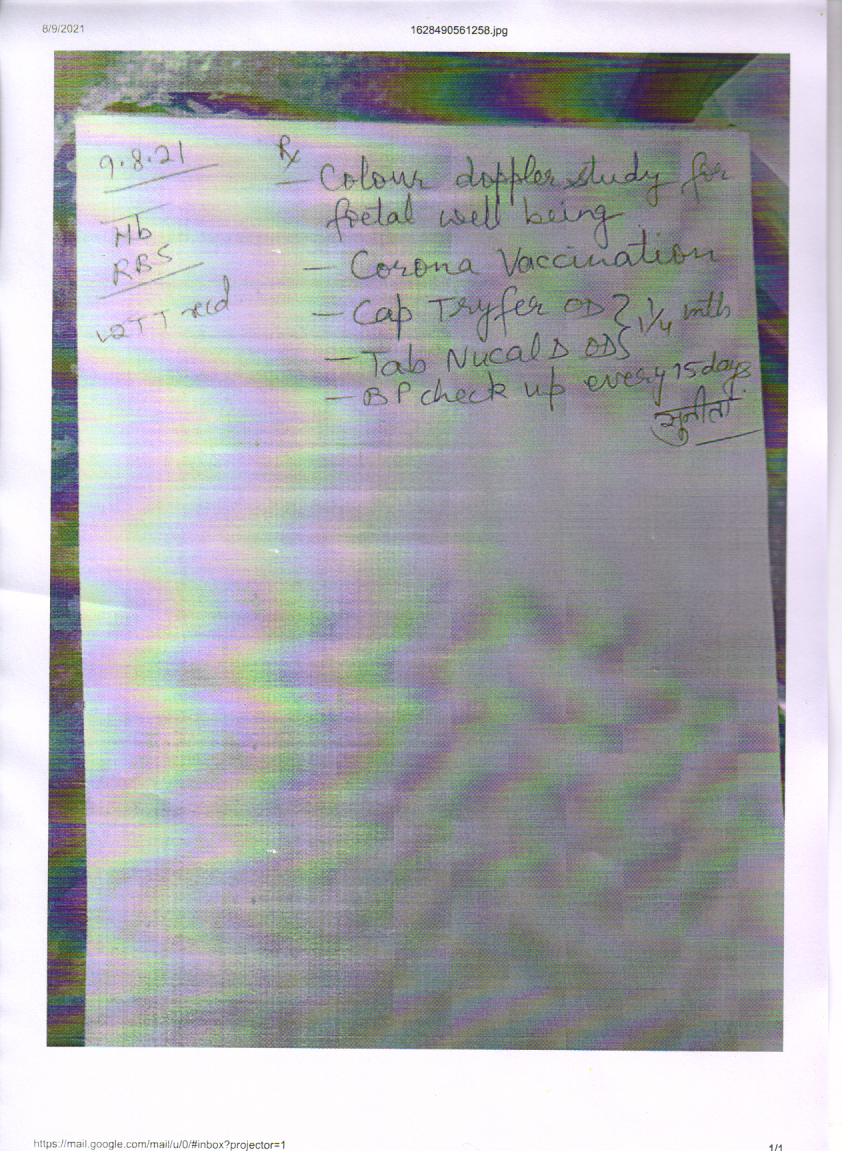 8/9/2021
1628490561258.jpg
9.8.21
Hb
RBS
recd
Rx
- Colour doppler study for
foetal well being
- Corona Vaccination
- Cap Tryfer OD } 1/4 mth
- Tab Nucal D OD
- BP check up every 15 days
सुनीता
https://mail.google.com/mail/u/0/#inbox?projector=1
1/1